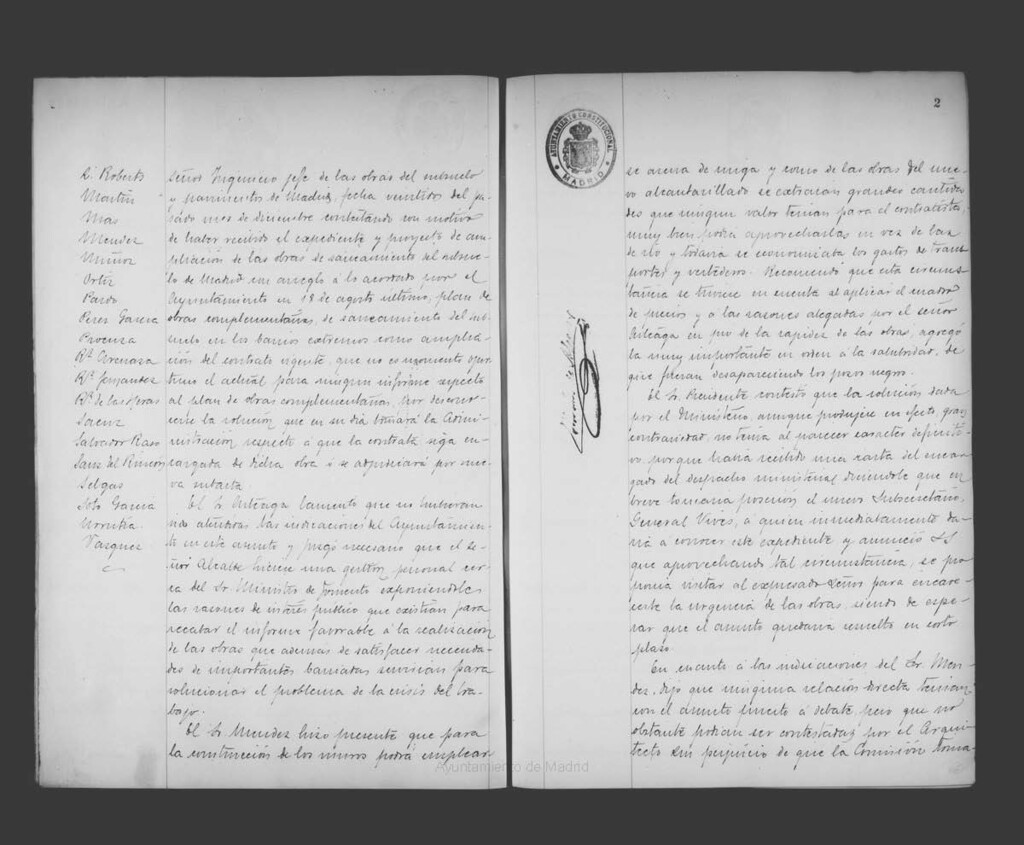 L. Roberto
Martín
Mas
Mendez
Muñoz
Ortiz
Pardo
Perez Garcia
Procura
Rz. Arenaza
Rz. Fernandez
Rz. de las Heras
Saenz
Salvador Raso
Sanz del Rincon
Selgas
Soto Garcia
Urrutia
Vazquez
señor Ingeniero jefe de las obras del subsuelo
y pavimentos de Madrid, fecha veintidos del pa-
sado mes de diciembre contestando con motivo
de haber recibido el expediente y proyecto de am-
pliación de las obras de saneamiento del subsue-
lo de Madrid con arreglo á lo acordado por el
Ayuntamiento en 18 de agosto último, plan de
obras complementarias, de saneamiento del sub-
suelo en los barrios extremos como amplia-
ción del contrato vigente, que no es momento opor-
tuno el actual para ningun informe respecto
al plan de obras complementarias, por descono-
cerse la solución que en su día tomará la Admi-
nistración respecto á que la contrata siga en-
cargada de dicha obra ó se adjudicará por nue-
va subasta.
El Sr. Arteaga lamentó que no hubieran
sido atendidas las indicaciones del Ayuntamien-
to en este asunto y juzgó necesario que el se-
ñor Alcalde hiciese una gestión personal cer-
ca del Sr. Ministro de Fomento exponiendole
las razones de interés público que existían para
recabar el informe favorable á la realización
de las obras que ademas de satisfacer necesida-
des de importantes barriadas servirían para
solucionar el problema de la crisis del tra-
bajo.
El Sr. Mendez hizo presente que para
la construcción de los muros podrá emplear
AYUNTAMIENTO CONSTITUCIONAL
MADRID
2
se arena de miga y como de las obras del nue-
vo alcantarillado se extraian grandes cantida-
des que ningun valor tenian para el contratista,
muy bien podia aprovecharlas en vez de las
de rio y todavia se economizaba los gastos de trans
portes y vertederos. Recomendó que esta circuns-
tancia se tuviese en cuenta al aplicar el cuadro
de precios y a las razones alegadas por el señor
Arteaga en pro de la rapidez de las obras, agregó
la muy importante en orden á la salubridad, de
que fueran desapareciendo los pozos negros.
El Sr. Presidente contestó que la solución dada
por el Ministerio, aunque produjese en efecto gran
contrariedad, no tenia al parecer caracter definiti-
vo, porque habia recibido una carta del encar-
gado del despacho ministerial diciendole que en
breve tomaria posesión el nuevo Subsecretario,
General Vives, á quien inmediatamente da-
ria á conocer este expediente y anunció S.S.
que aprovechando tal circunstancia, se pro
ponia visitar al expresado Señor para encare-
cerle la urgencia de las obras, siendo de espe-
rar que el asunto quedaria resuelto en corto
plazo.
En cuanto á las indicaciones del Sr. Men-
dez, dijo que ninguna relación directa tenian
con el asunto puesto á debate, pero que no
obstante podian ser contestadas por el Arqui-
tecto sin perjuicio de que la Comisión toma
Ayuntamiento de Madrid